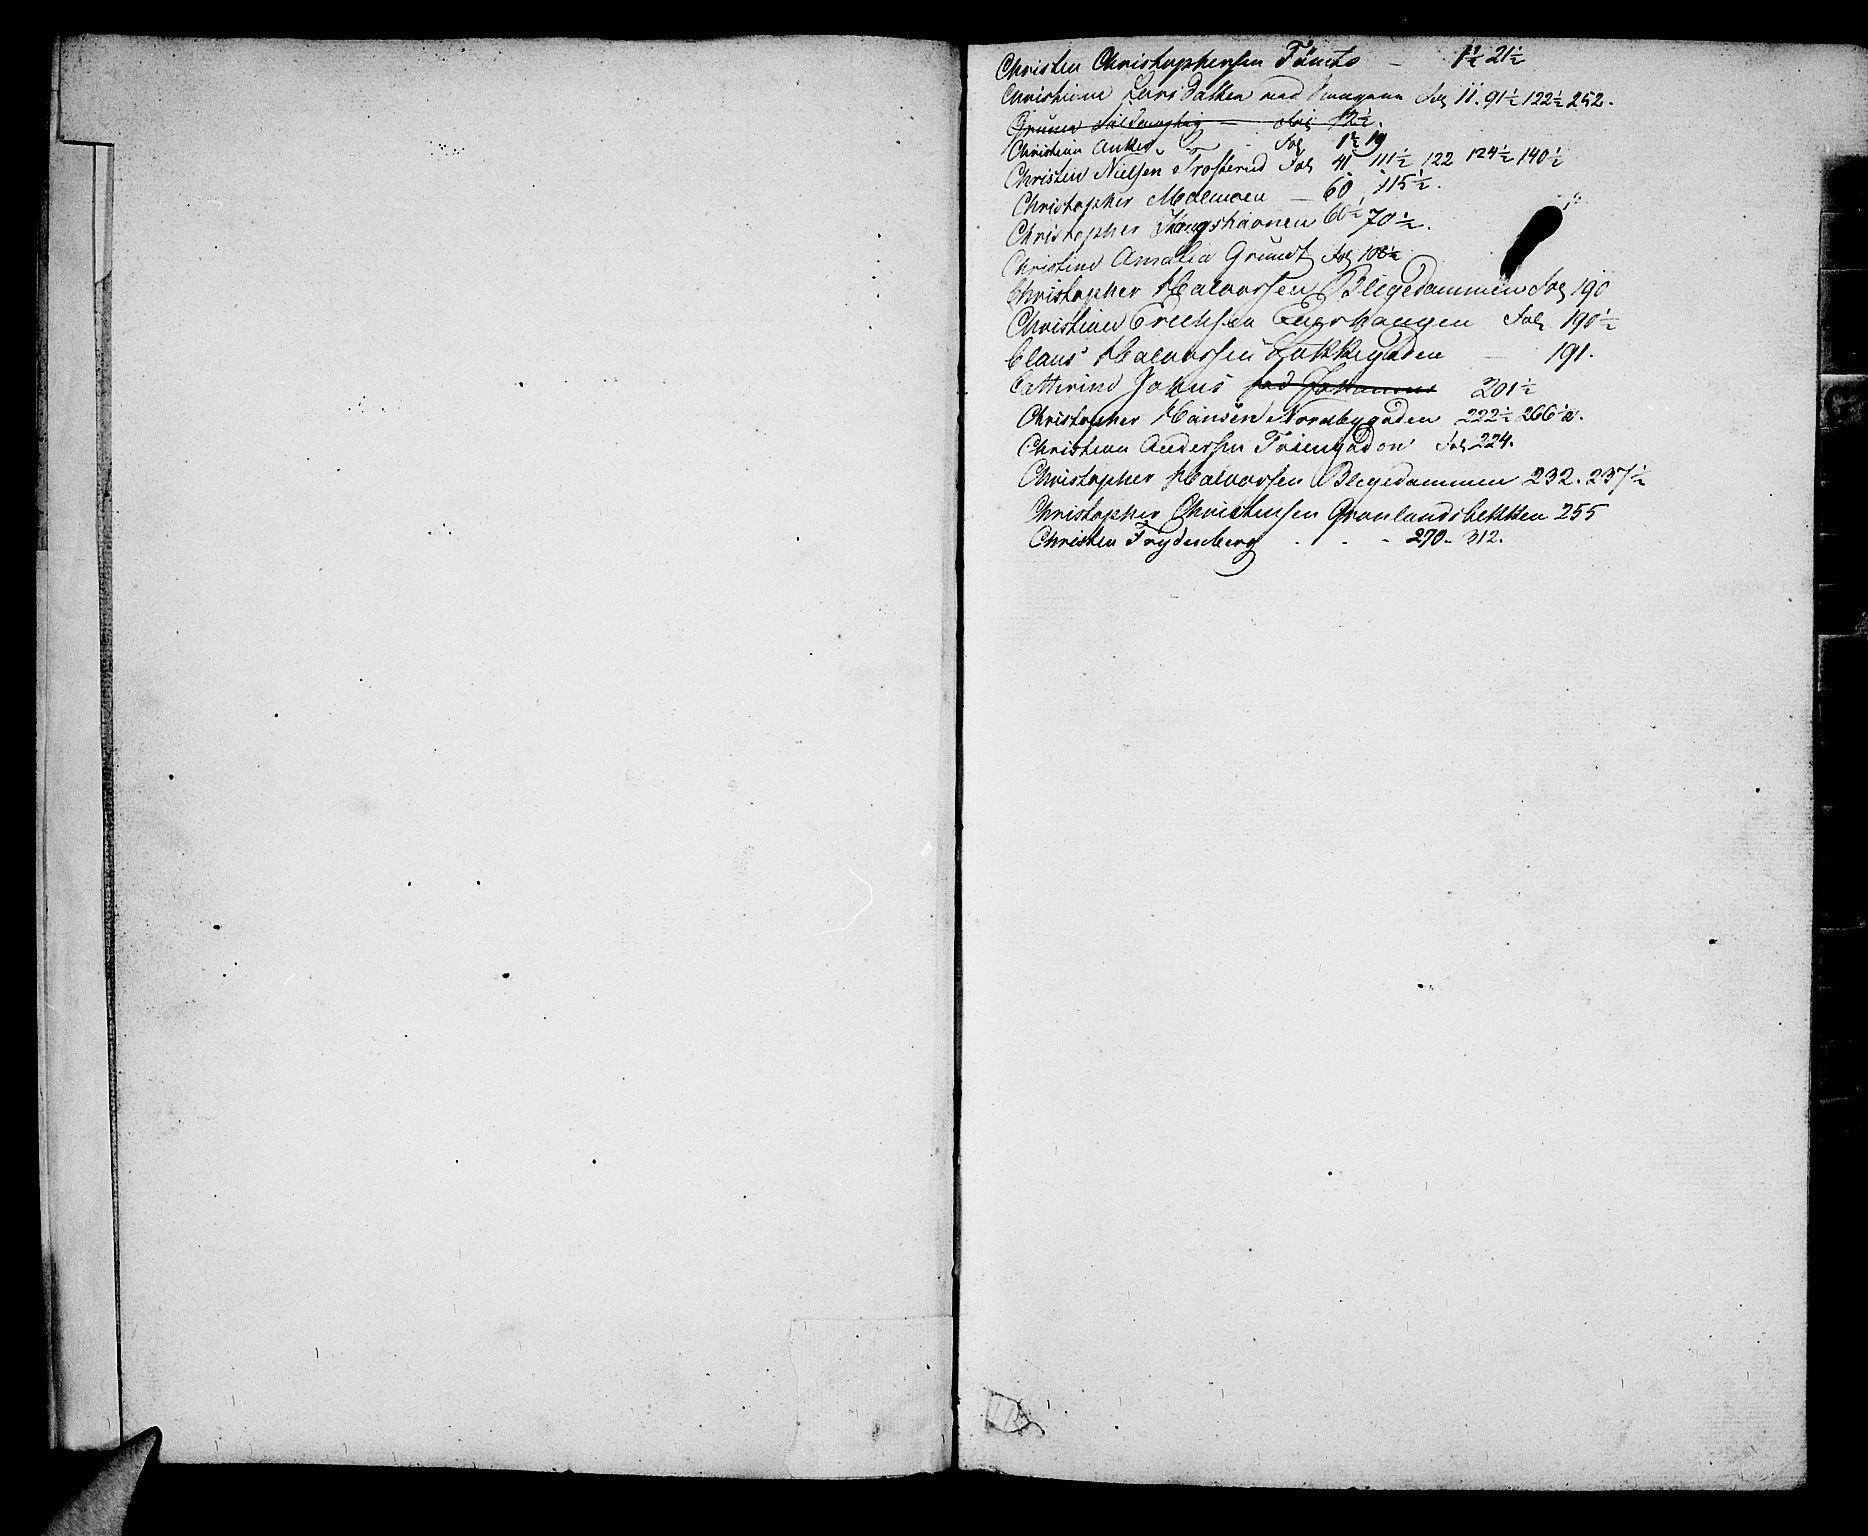 Christen Christophersen Tömte - 1½ 21½
Christiane Larsdatter ved Haugene Fol 11. 91½ 122½ 252.
Fol 12½.
Christian Anker Fol 1½ 19
Christen Nielsen Trosterud Fol 41 111½ 122 124½ 140½
Christopher Moemoen - 60 115½.
Christopher Kongshavnen 66½ 70½.
Christine Amalia Grundt Fol 108½
Christopher Halvorsen Blegedammen Fol 190
Christian Erichsen Enerhaugen Fol 190½
Claus Halvorsen Lakkegaden - 191.
Catterine Johus 201½
Christopher Hansen Nordbygaden 222½ 266½.
Christian Andersen Töiengaden Fol 224.
Christopher Halvorsen Blegedammen 232. 237½
Christopher Christensen Grønlandsbekken 255
Christen Frydenberg - - - 270. 312.